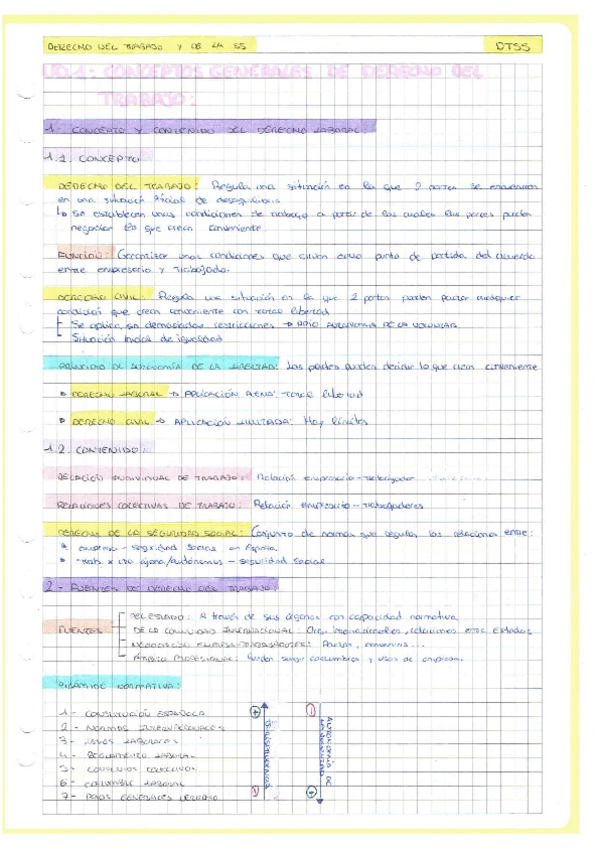 DERECHO DEL TRABAJO Y DE LA SS
DTSS
UD.1: CONCEPTOS GENERALES DE DERECHO DEL
TRABAJO:
1- CONCEPTO Y CONTENIDO DEL DERECHO LABORAL:
1.1. CONCEPTO
DERECHO DEL TRABAJO: Regula una situación en la que 2 partes se encuentran
en una situación inicial de desequilibrio
↳ Se establecen unas condiciones de trabajo a partir de las cuales las partes pueden
negociar lo que crean conveniente.
FUNCIÓN: Garantizar unas condiciones que sirven como punto de partida del acuerdo
entre empresario y trabajador.
DERECHO CIVIL: Regula una situación en la que 2 partes pueden pactar cualquier
condición que crean conveniente con total libertad
Se aplica sin demasiadas restricciones → PPIO AUTONOMÍA DE LA VOLUNTAD
Situación inicial de igualdad
PRINCIPIO DE AUTONOMÍA DE LA LIBERTAD: Las partes pueden decidir lo que crean conveniente
DERECHO LABORAL → APLICACIÓN PLENA: total libertad
DERECHO CIVIL → APLICACIÓN LIMITADA: Hay límites
1.2. CONTENIDO:
RELACIÓN INDIVIDUAL DE TRABAJO: Relación empresario-trabajador
RELACIONES COLECTIVAS DE TRABAJO: Relación empresario-trabajadores
DERECHO DE LA SEGURIDAD SOCIAL: Conjunto de normas que regulan las relaciones entre:
* empresa - seguridad social en España.
* trab x cta ajena/autónomos - seguridad social
2- FUENTES DE DERECHO DEL TRABAJO:
FUENTES
DEL ESTADO: A través de sus órganos con capacidad normativa
DE LA COMUNIDAD INTERNACIONAL: Org. internacionales, relaciones entre Estados
NEGOCIACIÓN EMPRESA-TRABAJADORES: Pactos, convenios...
ÁMBITO PROFESIONAL: Pueden surgir costumbres y usos de empresa.
PIRÁMIDE NORMATIVA:
1- CONSTITUCIÓN ESPAÑOLA
2- NORMAS INTERNACIONALES
3- LEYES LABORALES
4- REGLAMENTO LABORAL
5- CONVENIOS COLECTIVOS
6- COSTUMBRE LABORAL
7- PPIOS GENERALES DERECHO
+
-
-
+
AUTONOMÍA DE
LA VOLUNTAD